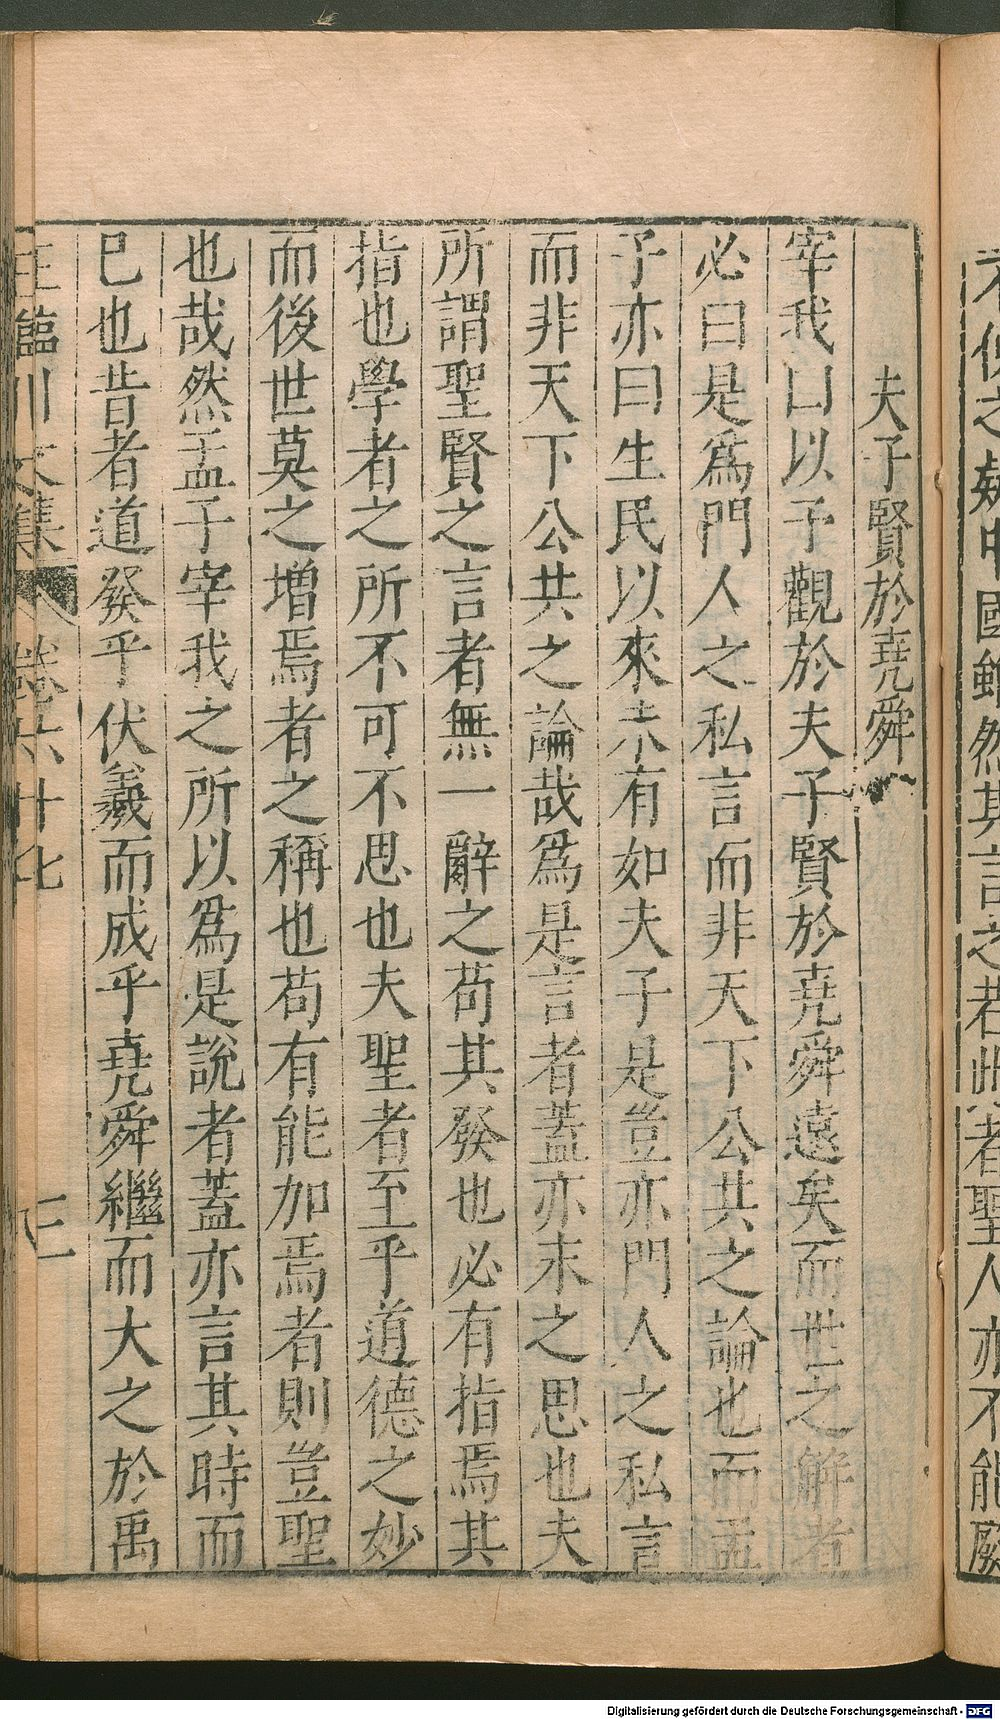 夫子賢於堯舜
宰我曰以子觀於夫子賢於堯舜遠矣而世之解者
必曰是爲門人之私言而非天下公共之論也而孟
子亦曰生民以來未有如夫子是豈亦門人之私言
而非天下公共之論哉爲是言者蓋亦未之思也夫
所謂聖賢之言者無一辭之苟其發也必有指焉其
指也學者之所不可不思也夫聖者至乎道德之妙
而後世莫之增焉者之稱也苟有能加焉者則豈聖
也哉然孟子宰我之所以爲是說者蓋亦言其時而
已也昔者道發乎伏羲而成乎堯舜繼而大之於禹
王臨川文集 卷六十七 三
之疑中國雖然其言之若此者聖人亦不能廢
Digitalisierung gefördert durch die Deutsche Forschungsgemeinschaft - DFG